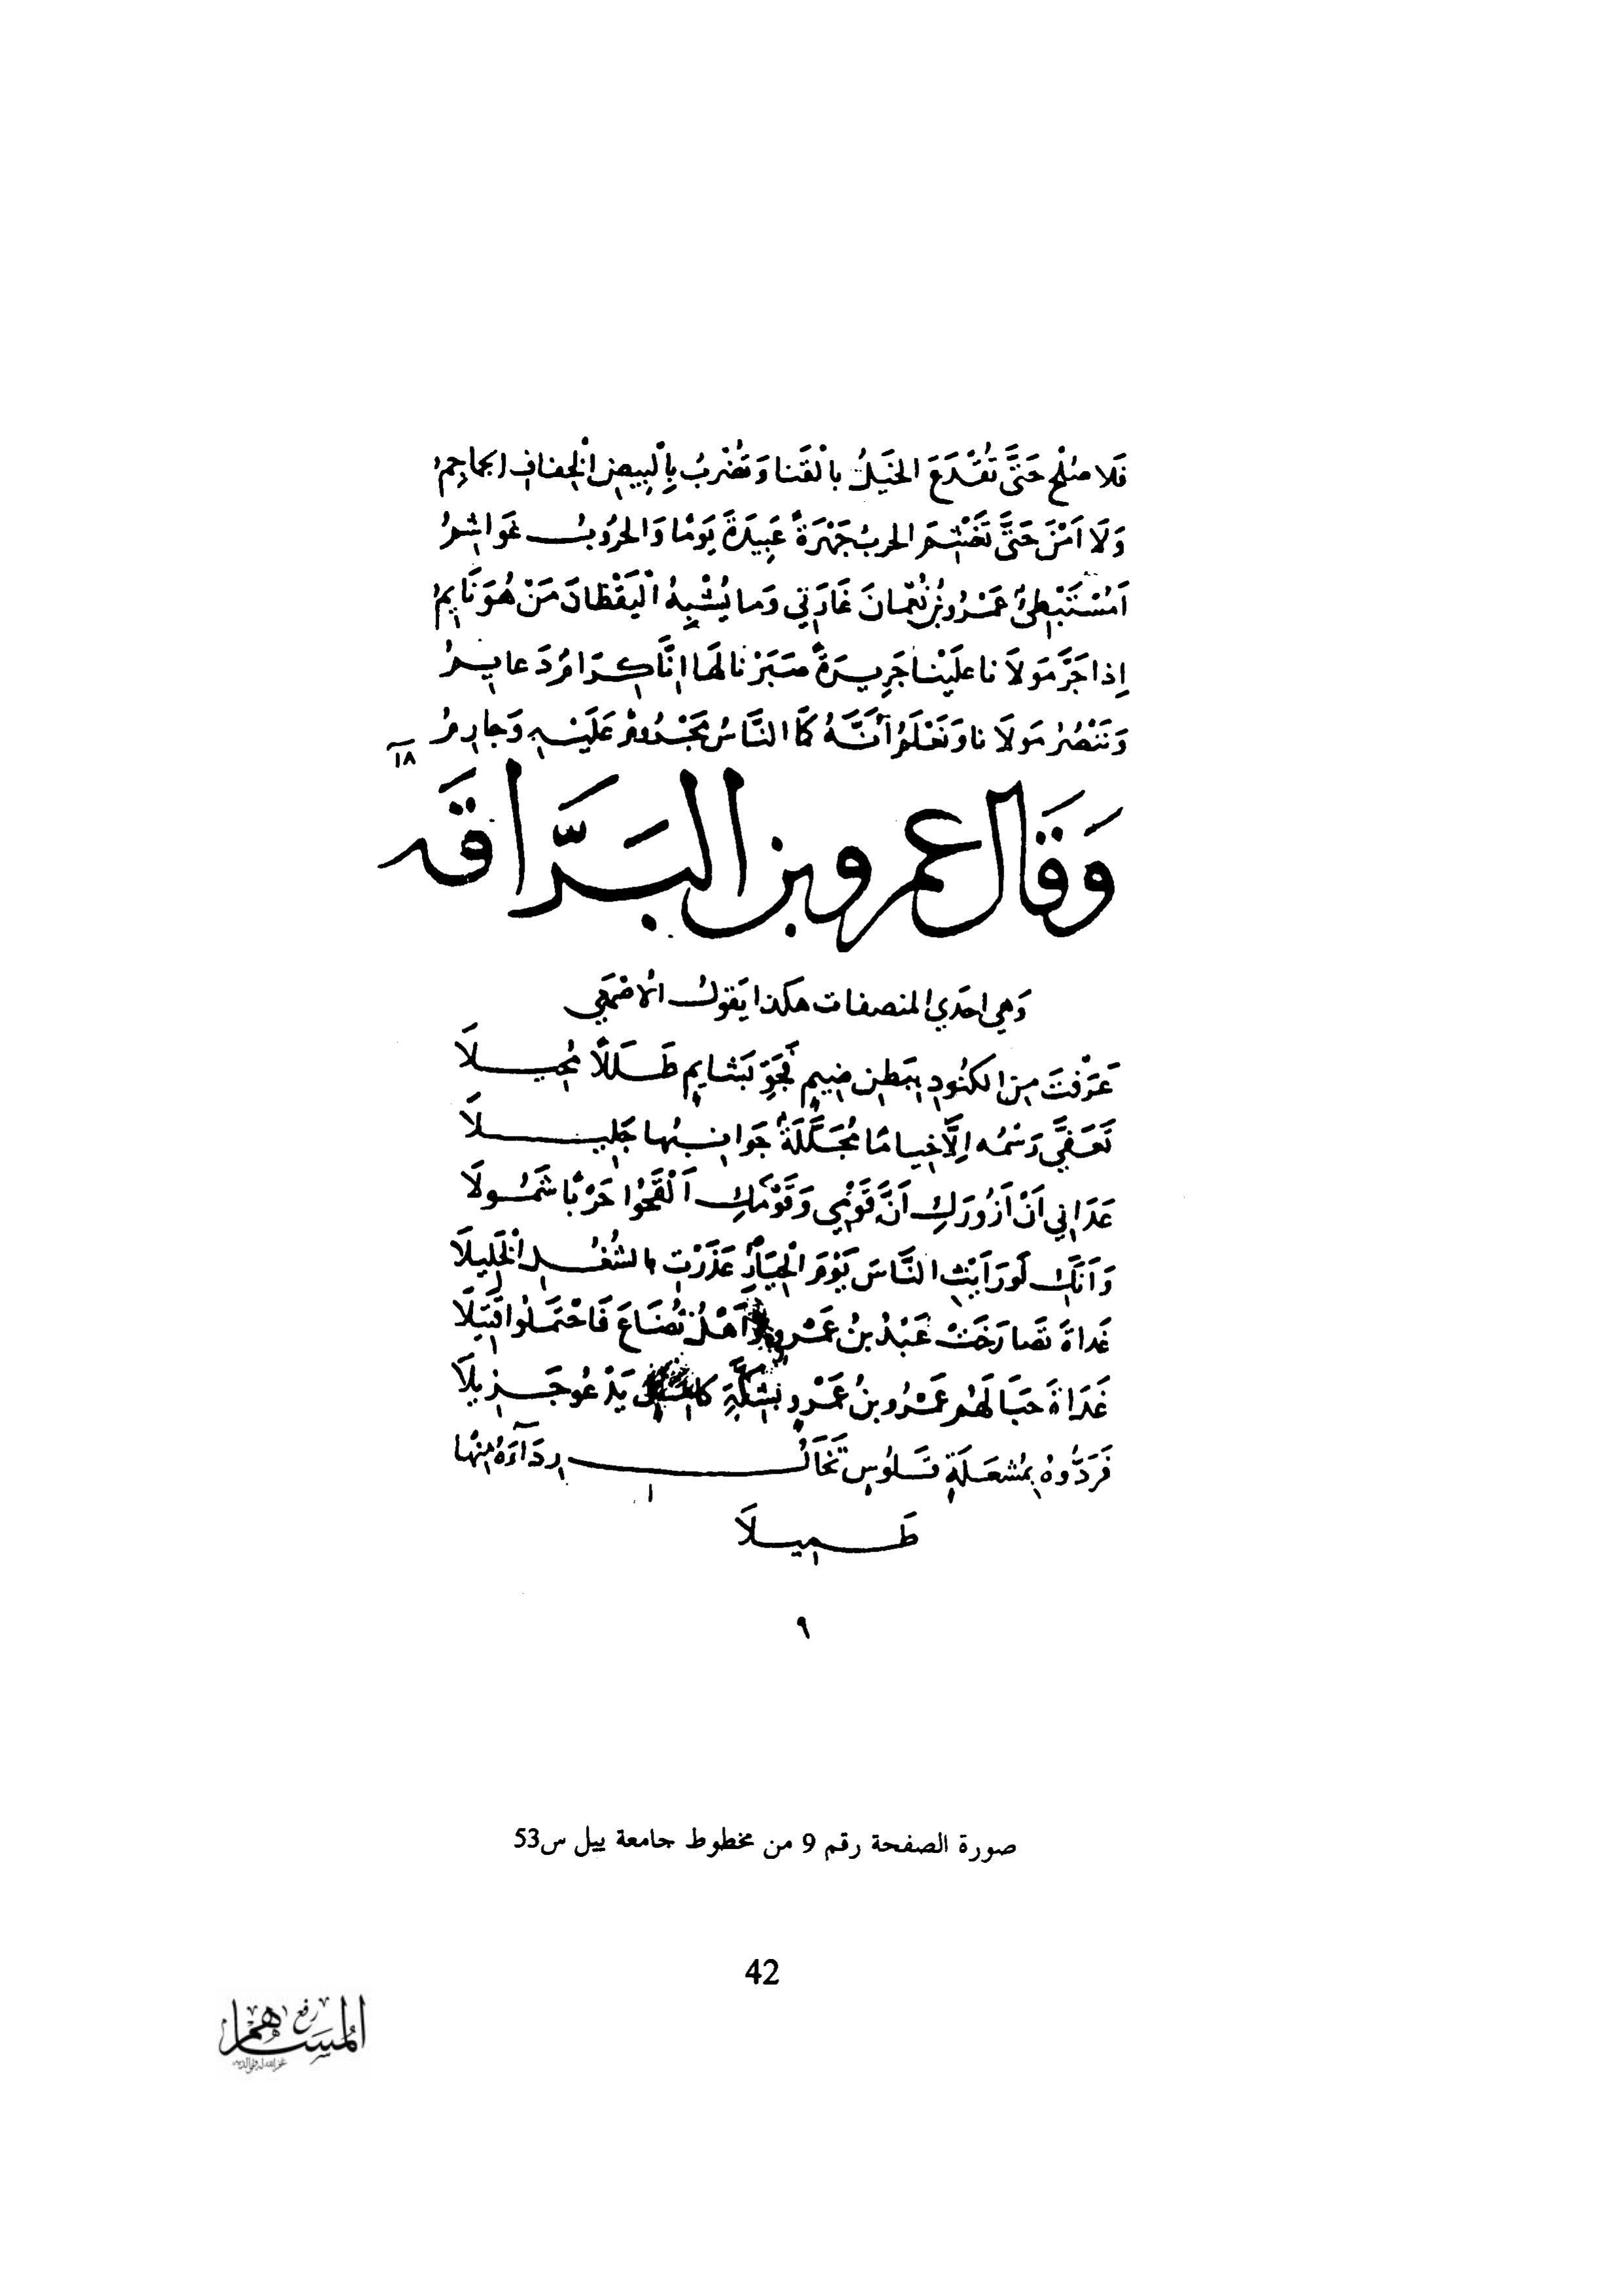 فَلا صُلْحَ حَتَّى تُقْدَعَ الخَيْلُ بالْقَنا وَتُضْرَبُ بِالْبِيضِ الْخِفافِ الجماجِمُ
وَلَا اَمْنَ حَتَّى تَغْشِمَ الحربُ جَهْرَةً عَبِيدَةَ يَوْمًا وَالحُرُوبُ غَواشِمُ
اَمُسْتَبْطِئٌ عَمْرُو بْنُ نُعْمانَ غَارَتِي وَما يُشْبِهُ الْيَقْظانَ مَنْ هُوَ نَايِمُ
اِذا جَرَّ مَوْلَانا علَيْنا جَرِيرَةً صَبَرْنا لَهَا اِنَّا كِرَامٌ دَعايِمُ
وَنَنْصُرُ مَوْلَانا وَنَعْلَمُ أَنَّهُ كَمَا النَّاسُ مَجْرُومٌ عَلَيْهِ وَجارِمُ
١٨
وَقَال عمرو بن البَرَّاقَه
وَهي احَدي المنصفات هكذا يَقولُ الْاصْمَعِي
عَرَفْتَ مِنَ الكنُودِ بِبَطنِ ضِيمٍ فَجَوِّ بَشايِمٍ طَلَلًا مُحِيلَا
تَعَفَّي رَسْمُه اِلَّا خِيامًا مُجَلَّلَةً جَوانِبُها جَلِيلَا
عَدَانِي اَنْ اَزُورَكِ اَنَّ قَوْمِي وَقَوْمَكِ اَلْقَحُوا حَرْبًا شَمُولَا
وَاَنَّكِ لَورَاَيْتِ النَّاسَ يَوْمَ الْحِيَارِ عَذَرْتِ بالشُغُلِ الْخَلِيلَا
غَداةَ تَصارَخَتْ عَبْدُ بنُ عَمْرٍو اَهْلُ نُضَاعَ فَاحْتَمَلُوا قَتِيلَا
غَدَاةَ حَبَا لَهُم عَمْرُو بنُ عَمْرٍو بِشِكَّةِ يَدْعُو جَزِيلَا
فَرَدُّوهُ بِمُشعَلَةٍ قَلُوسٍ تَخَالُ رِدَآءَهُ مِنْها
طَمِيلَا
٩
صورة الصفحة رقم 9 من مخطوط جامعة ييل س53
42
رفع
المساهم
غفر الله له ولوالديه